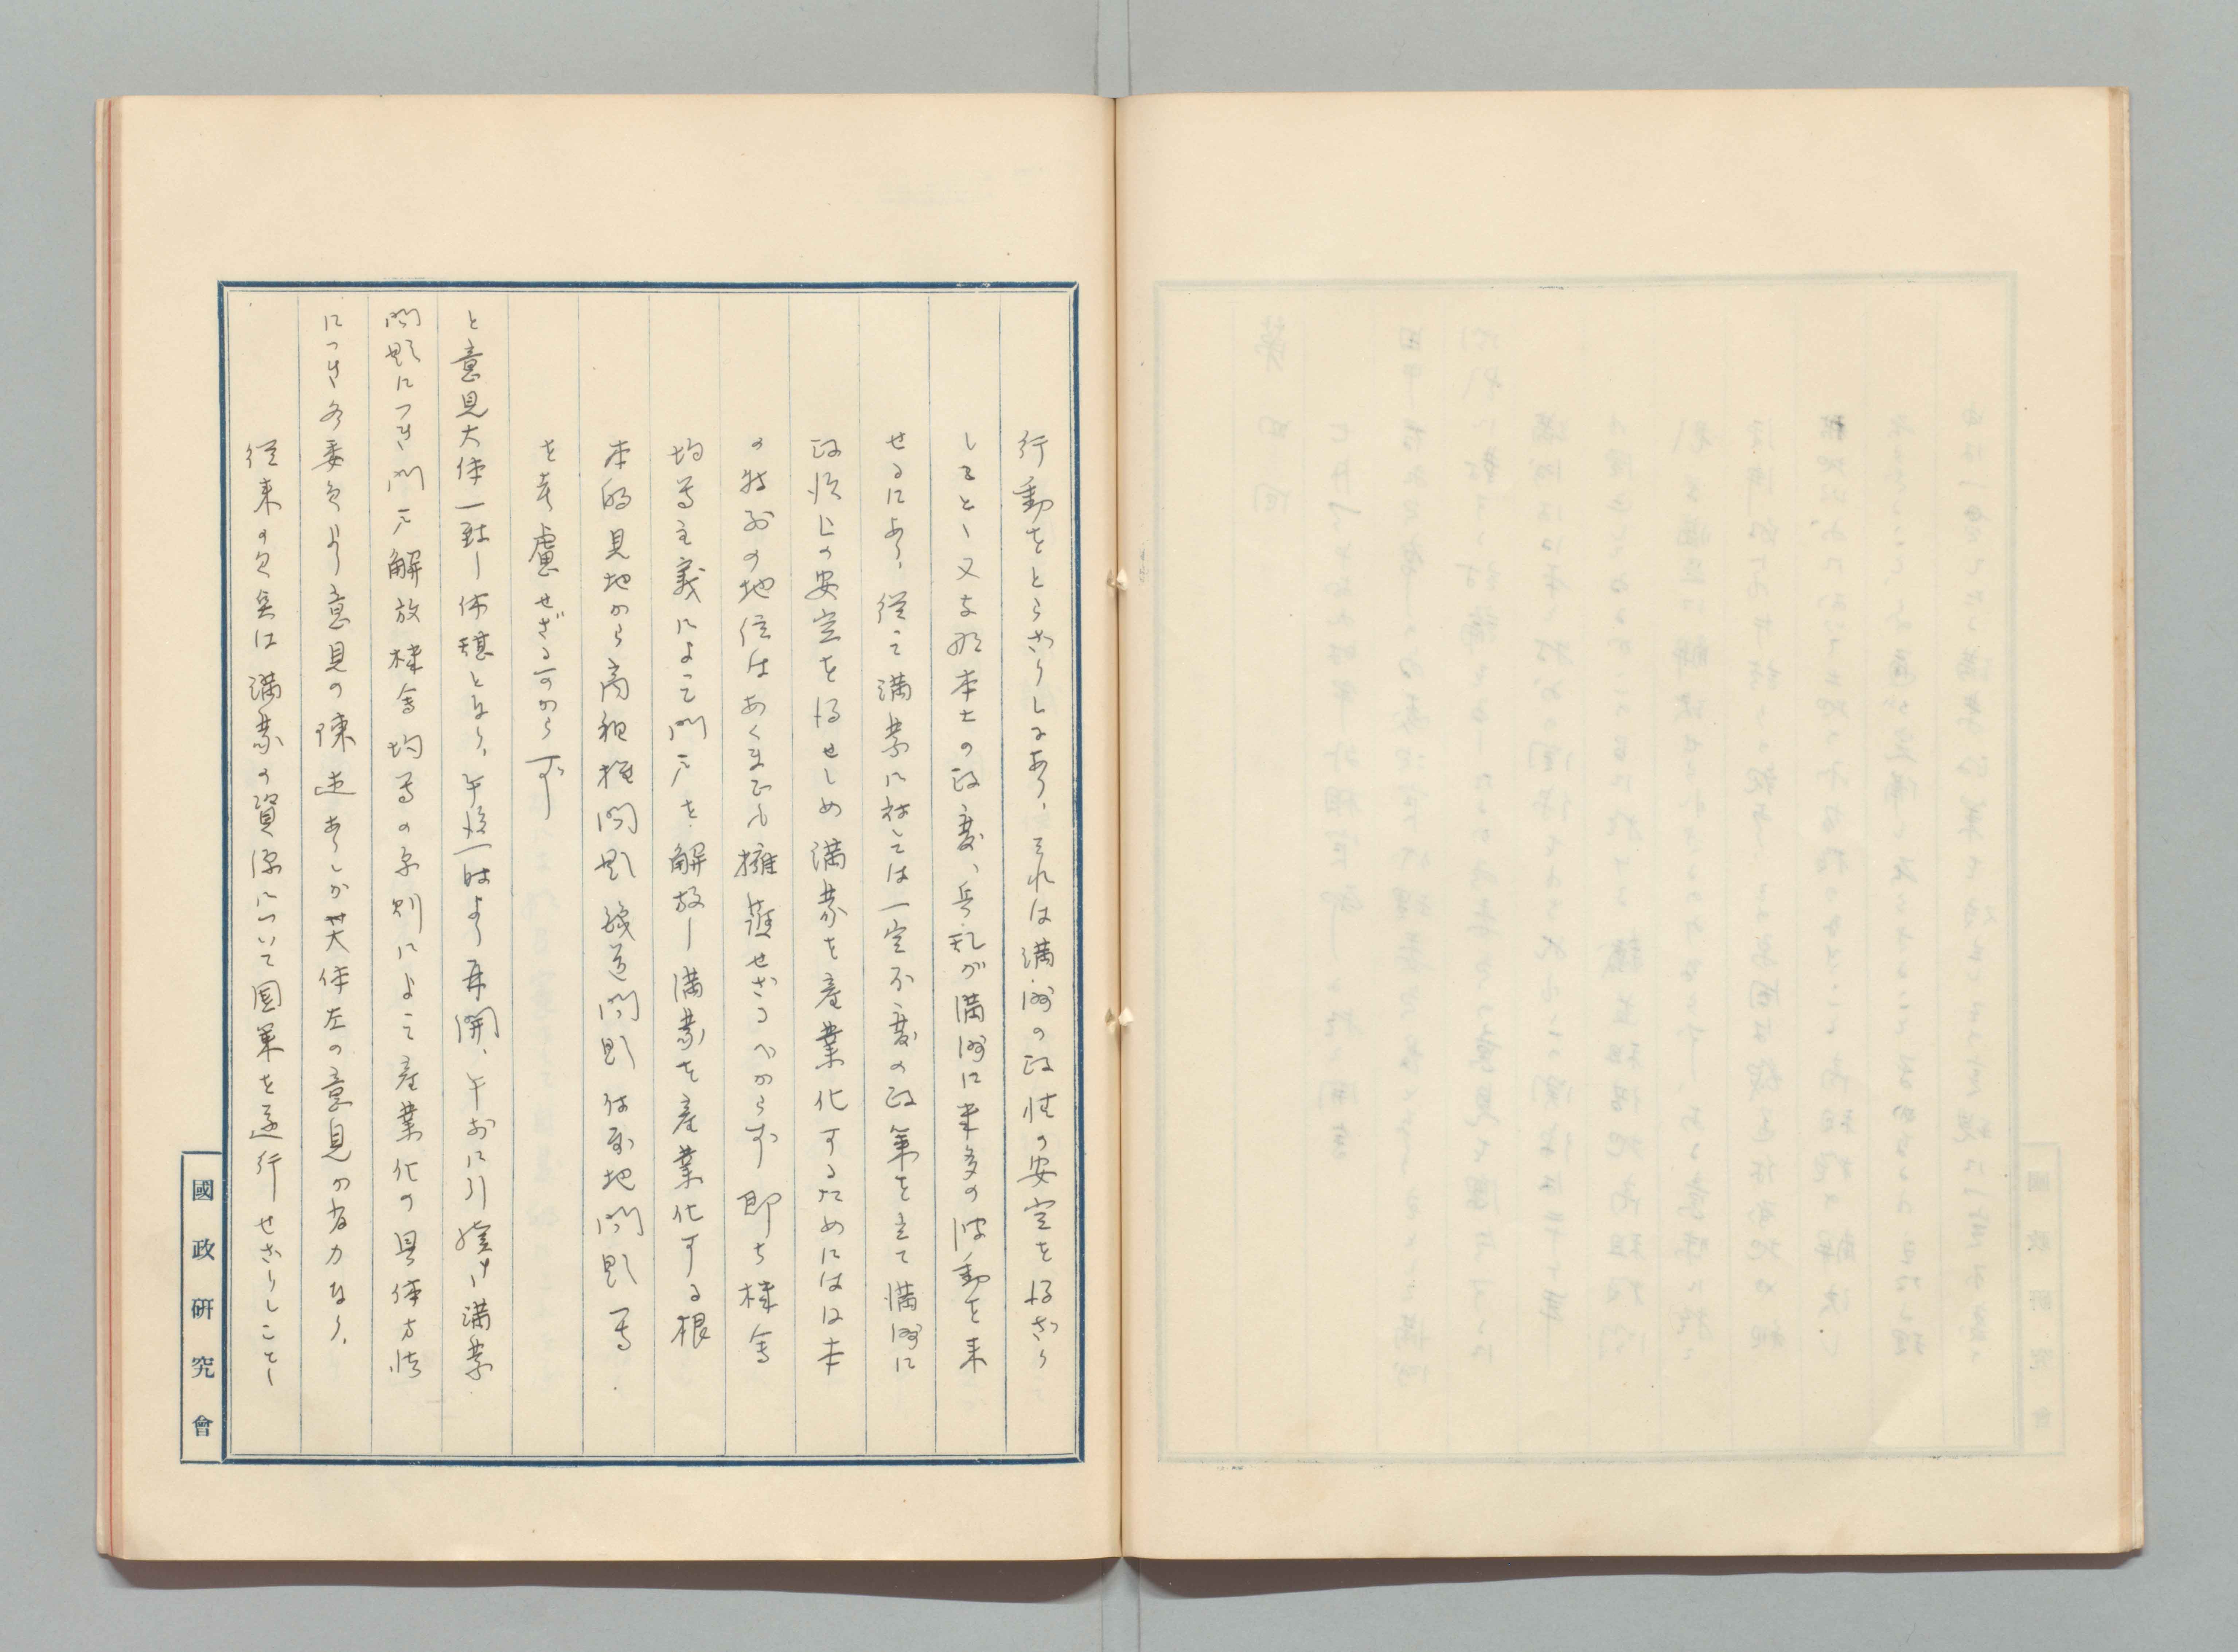 行動をとらざりしにあり、それは満洲の政情の安定を得ざり
しこと、又支那本土の政変、兵乱が満洲に幾多の波動を来
せるにあり、従て満蒙に対しては一定不変の政策を立て満洲に
政治上の安定を得せしめ満蒙を産業化するためには日本
の特殊の地位はあくまでも擁護せざるべからず 即ち機会
均等主義によつて門戸を解放し満蒙を産業化する根
本的見地から商租権問題 鉄道問題 付属地問題等
を考慮せざる可からず
と意見大体一致し休憩となり、午後一時より再開、午前に引続き満蒙
問題につき門戸解放機会均等の原則によって産業化の具体方法
につき各委員より意見の陳述ありしが大体左の意見が有力なり、
従来の欠点は満蒙の資源について国策を遂行せざりしことし
國政研究會